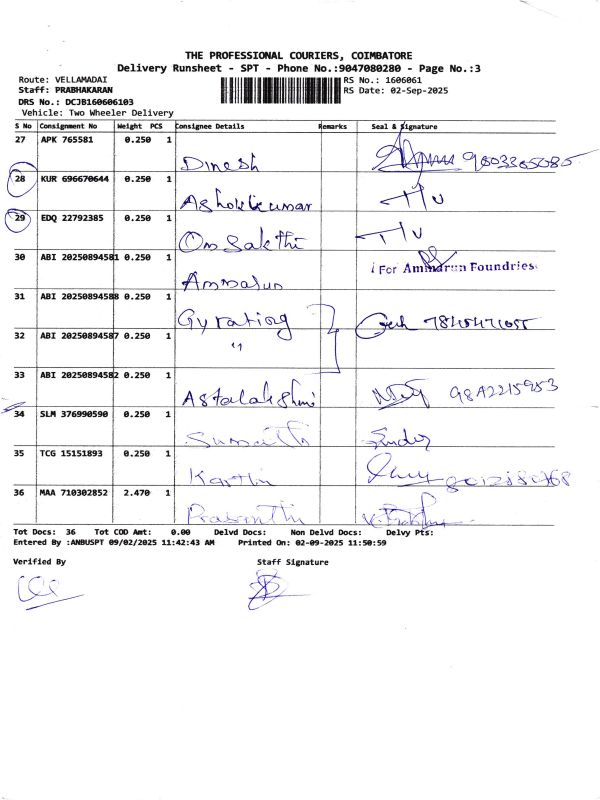 THE PROFESSIONAL COURIERS, COIMBATORE
Delivery Runsheet - SPT - Phone No.:9047080280 - Page No.:3
Route: VELLAMADAI RS No.: 1606061
Staff: PRABHAKARAN RS Date: 02-Sep-2025
DRS No.: DCJB160606103
Vehicle: Two Wheeler Delivery
S No Consignment No Weight PCS Consignee Details Remarks Seal & Signature
27 APK 765581 0.250 1 Dinesh
28 KUR 696670644 0.250 1 Ashokkumar T/u
29 EDQ 22792385 0.250 1 Om Sakthi T/u
30 ABI 20250894581 0.250 1 Ammarun For Ammarun Foundries
31 ABI 20250894588 0.250 1 Gyrating
32 ABI 20250894587 0.250 1 "
33 ABI 20250894582 0.250 1 Astalakshmi
34 SLM 376990590 0.250 1
35 TCG 15151893 0.250 1 Karthi
36 MAA 710302852 2.470 1 Prasanthi
Tot Docs: 36 Tot COD Amt: 0.00 Delvd Docs: Non Delvd Docs: Delvy Pts:
Entered By :ANBUSPT 09/02/2025 11:42:43 AM Printed On: 02-09-2025 11:50:59
Verified By Staff Signature